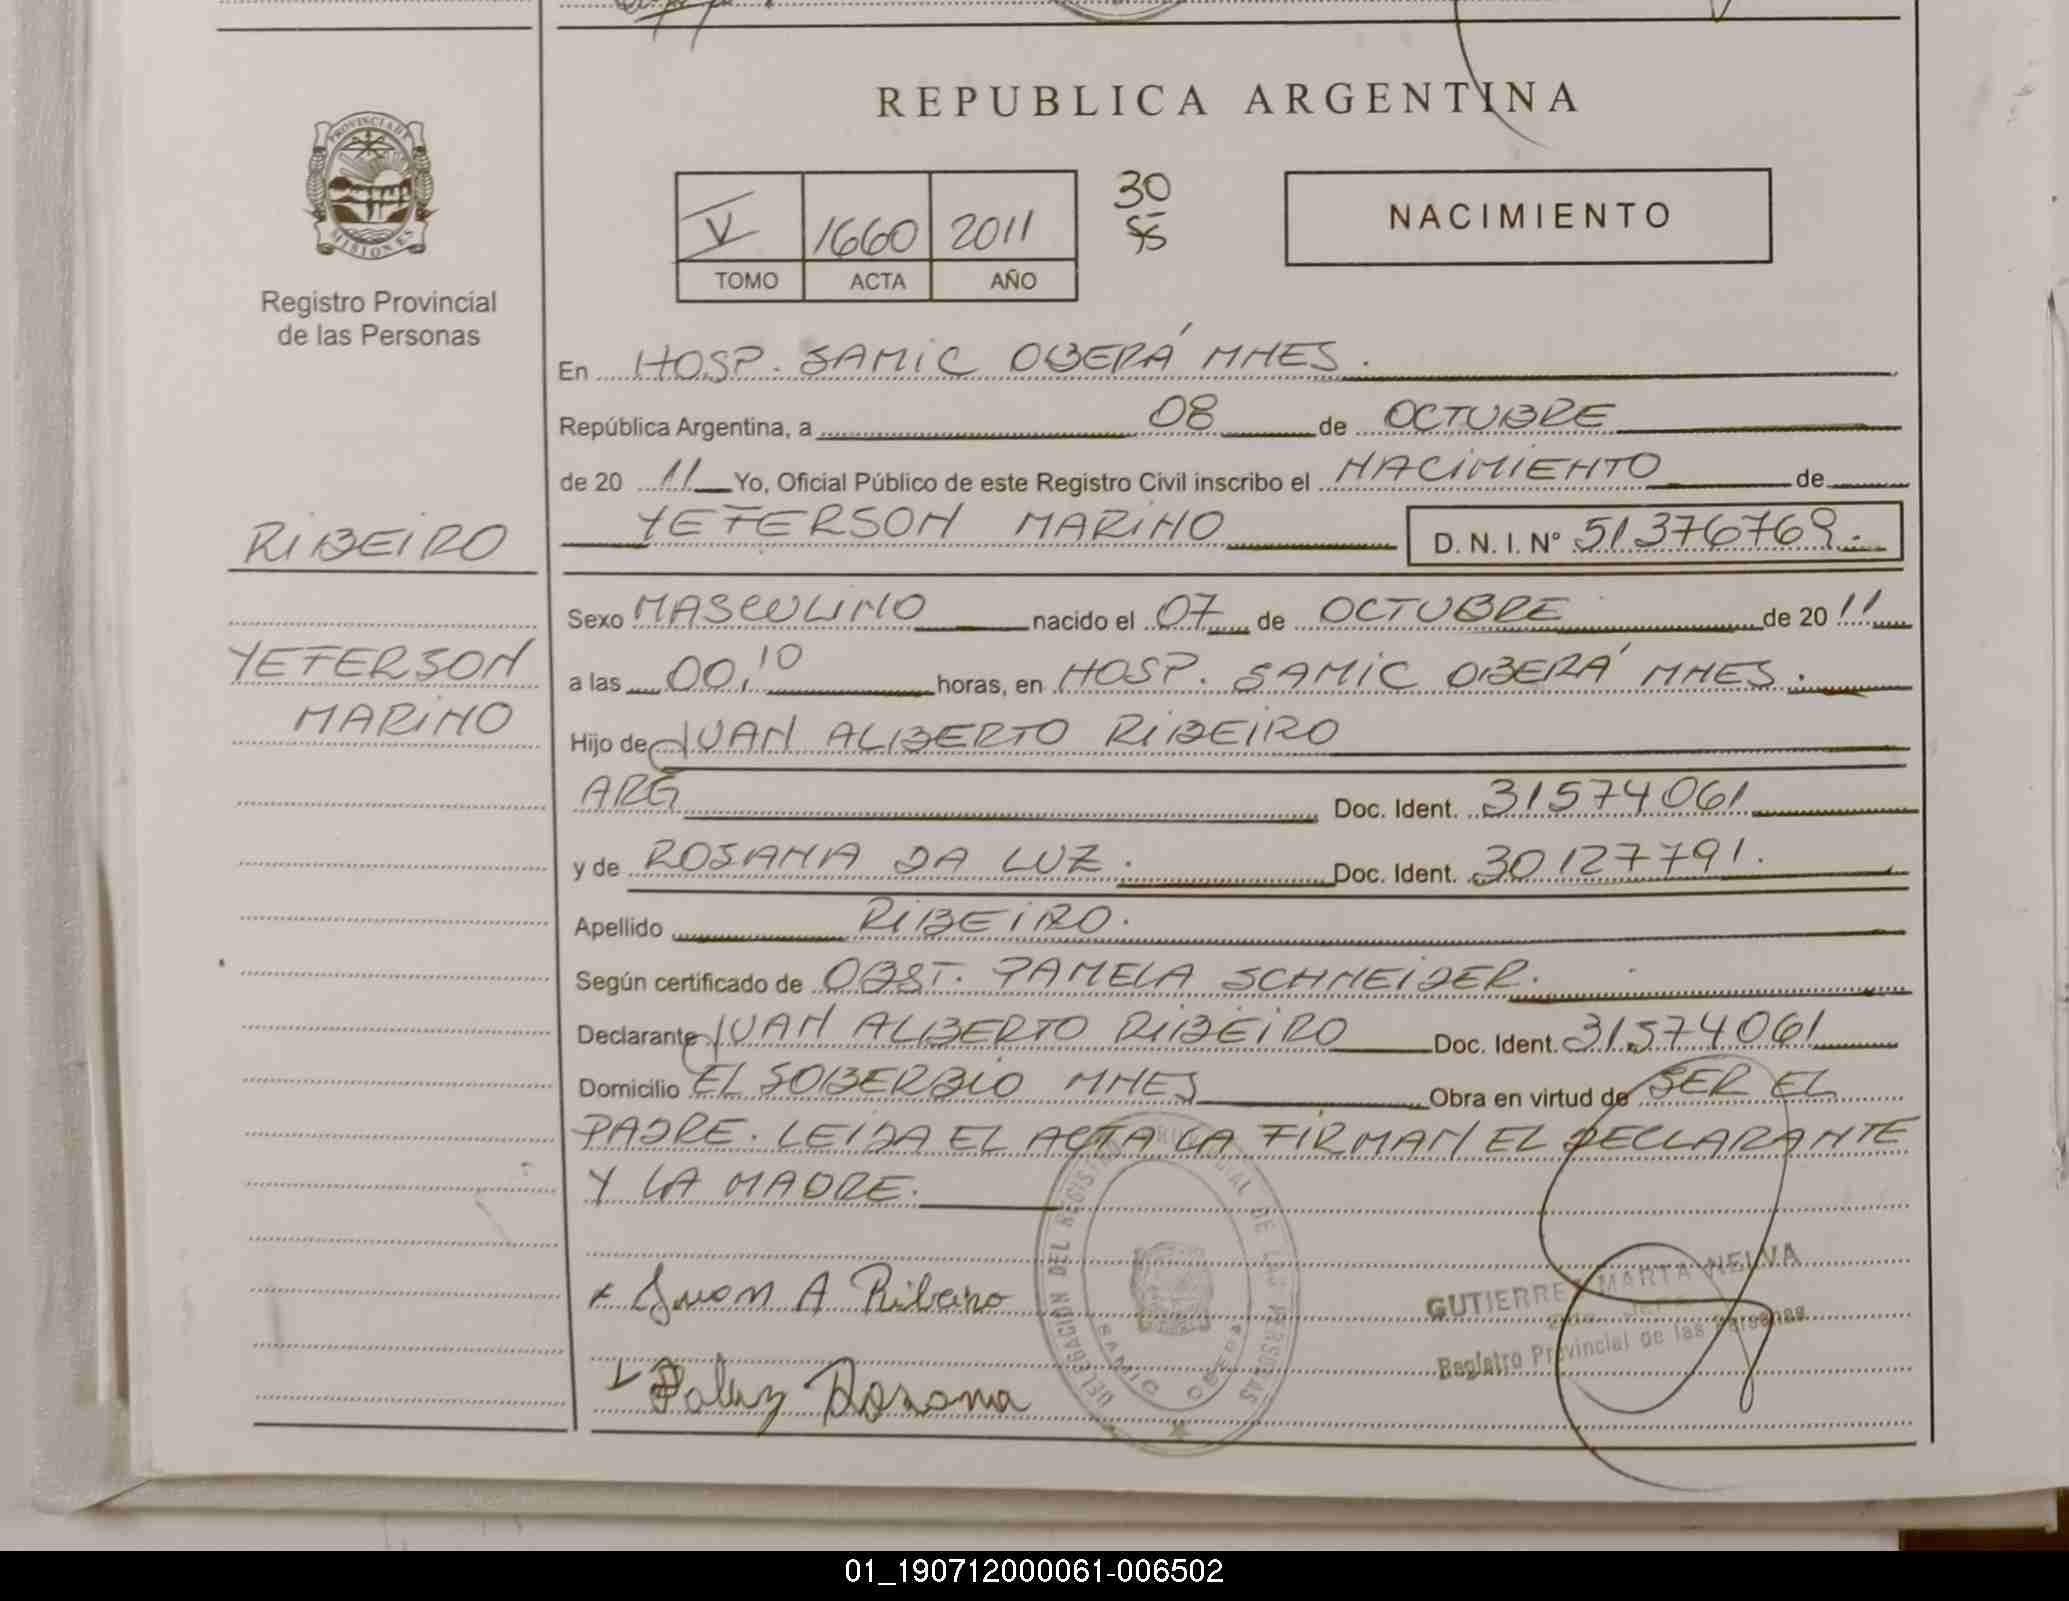 REPUBLICA ARGENTINA
PROVINCIA DE
MISIONES
Registro Provincial
de las Personas
V 1660 2011
TOMO ACTA AÑO
30
55
NACIMIENTO
En HOSP. SAMIC OBERÁ MNES.
República Argentina, a 08 de OCTUBRE
de 20 11 Yo, Oficial Público de este Registro Civil inscribo el NACIMIENTO de
YEFERSON MARINO D. N. I. N° 51376769.
RIBEIRO
YEFERSON
MARINO
Sexo MASCULINO nacido el 07 de OCTUBRE de 20 11
a las 00:10 horas, en HOSP. SAMIC OBERÁ MNES.
Hijo de JUAN ALBERTO RIBEIRO
ARG Doc. Ident. 31574061
y de ROSANA DA LUZ. Doc. Ident. 30127791.
Apellido RIBEIRO.
Según certificado de OBST. PAMELA SCHNEIDER.
Declarante JUAN ALBERTO RIBEIRO Doc. Ident. 31574061
Domicilio EL SOBERBIO MNES Obra en virtud de SER EL
PADRE. LEIDA EL ACTA LA FIRMAN EL DECLARANTE
Y LA MADRE.
DELEGACIÓN DEL REGISTRO PROVINCIAL DE LAS PERSONAS
SAMIC OBERA
Juan A Ribeiro
Daluz Rosana
GUTIERREZ MARTA NELVA
Registro Provincial de las Personas
01_190712000061-006502